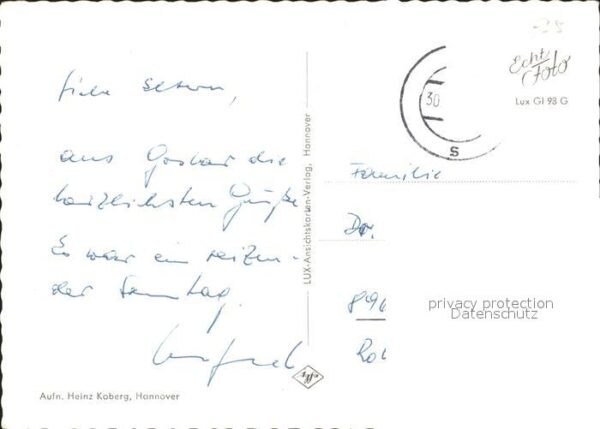 Liebe Eltern,
aus Goslar die
herzlichsten Grüße.
Es war ein reizen-
der Sonntag.
Aufn. Heinz Koberg, Hannover
LUX-Ansichtskarten-Verlag, Hannover
Agfa
30
S
Echt
Foto
Lux Gl 93 G
Familie
Dr.
896
privacy protection
Datenschutz